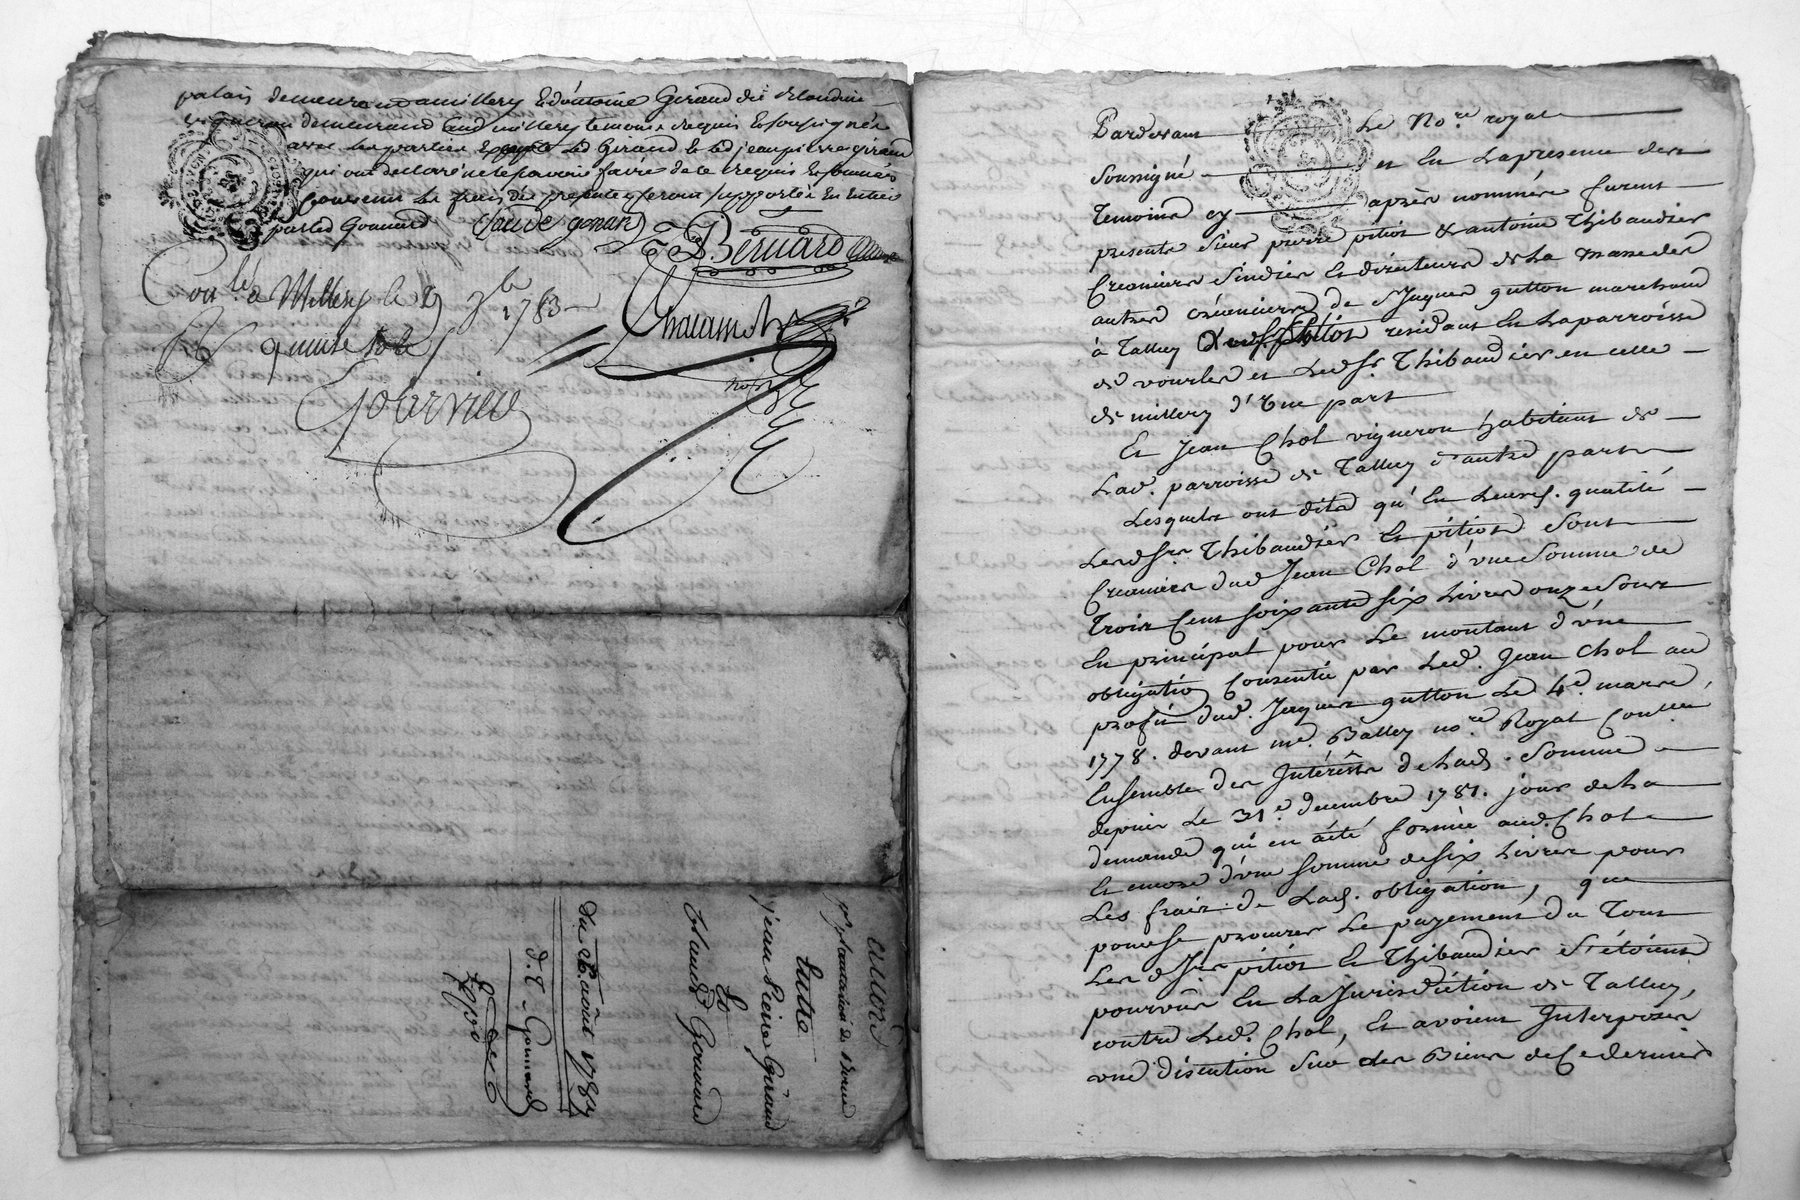 palais demeurant a millery & d'antoine Giraud dit blondin
vigneron demeurant aud millery temoins requis & soussignés
avec les parties excepté led Giraud le led jean pierre giraud
qui ont declaré ne le savoir faire de ce requis & sommés
convenu les frais des presentes seront supportés en entier
par led Gonnard Claude gonard
Bernard
Conlé a Millery le 9 7bre 1783
R quinze sols
Chacannot
Accord
Entre
jean Pierre Giraud
Et
Claude Gonnard
du août 178
Pardevant le Nore royal
Soussigné et En la presence des
Temoins cy après nommés furent
presents sieur pierre pition & antoine Thibaudier
Creanciers sindics et directeurs de la masse des
autres créanciers de sr Jaques gutton marchand
à Talluy led sr pition residant en la parroisse
de vourles et led sr Thibaudier en celle
de millery d'une part
Et Jean Chol vigneron habitant de
lad. parroisse de Talluy d'autre part
Lesquels ont dits qu'en leursd. qualité
Lesd srs Thibaudier et pition sont
Creanciers dud Jean Chol d'une somme de
trois cent soixante six livres onze sours
En principal pour le montant d'une
obligation consentie par led. Jean Chol au
profit dud. Jaques gutton le 4e. mars
1778. devant me. Balley nore Royal
Ensemble des Intérêts de lad. somme
depuis le 31e. decembre 1781. jour de la
demande qui en a été formée aud. Chol
Et encore d'une somme de six livres pour
Les frais de lad. obligation, que
pour se procurer le payement du tout
Lesd srs pition et Thibaudier s'étoient
pourvûs En la Jurisdiction de Talluy,
contre led. Chol, et avoient Interposer
une discution sur des Biens de ce dernier